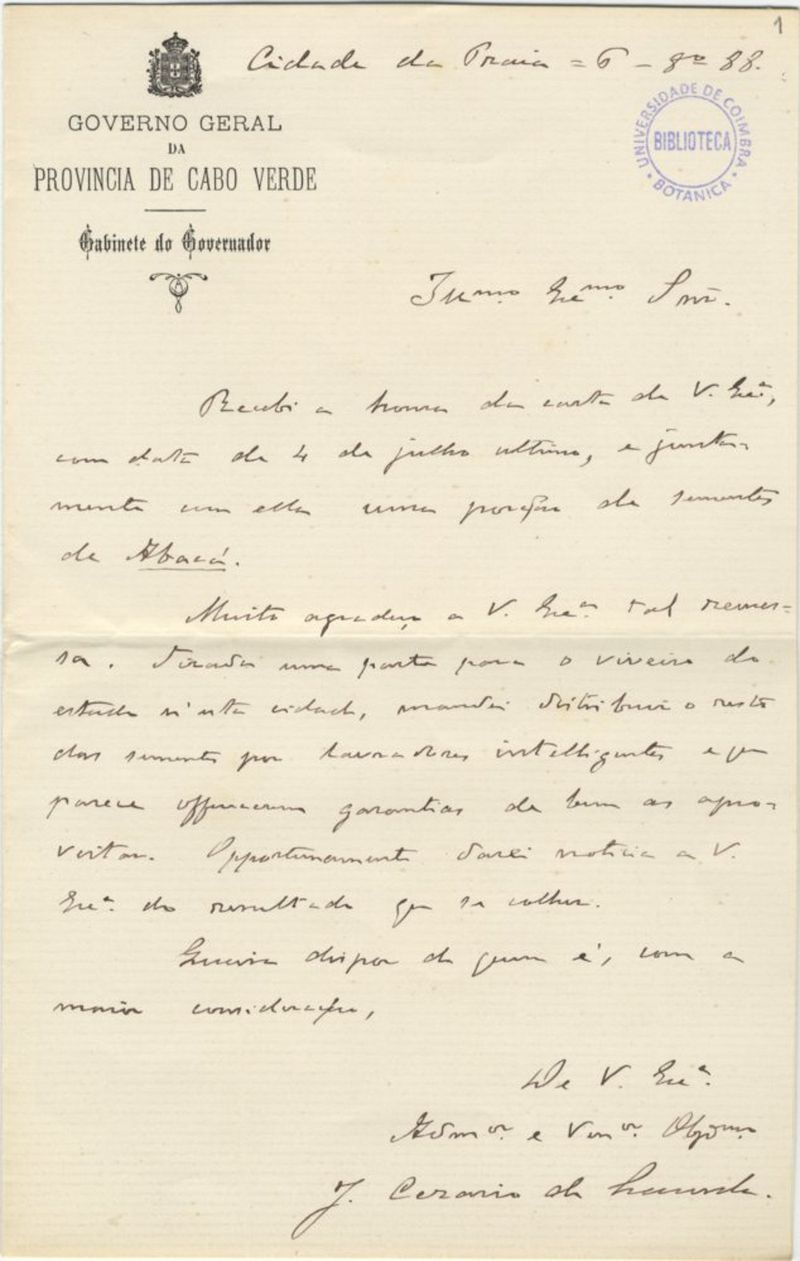 1
Cidade da Praia = 6 - 8º 88.
GOVERNO GERAL
DA
PROVINCIA DE CABO VERDE
Gabinete do Governador
UNIVERSIDADE DE COIMBRA
BIBLIOTECA
BOTANICA
Illmo. Exmo. Snr.
Recebi a honra da carta de V. Exª,
com data de 4 de julho ultimo, e junta-
mente com ella uma porção de sementes
de Abacá.
Muito agradeço a V. Exª tal remes-
sa. Tirada uma parte para o viveiro do
estado n'esta cidade, mandei distribuir o resto
das sementes por lavradores intelligentes e que
parece offerecerem garantias de bem as apro-
veitar. Opportunamente darei noticia a V.
Exª. do resultado que se colher.
Queira dispor de quem é, com a
maior consideração,
De V. Exª.
Admor. e Venor. Obgdmo
J. Cezario de Lacerda.